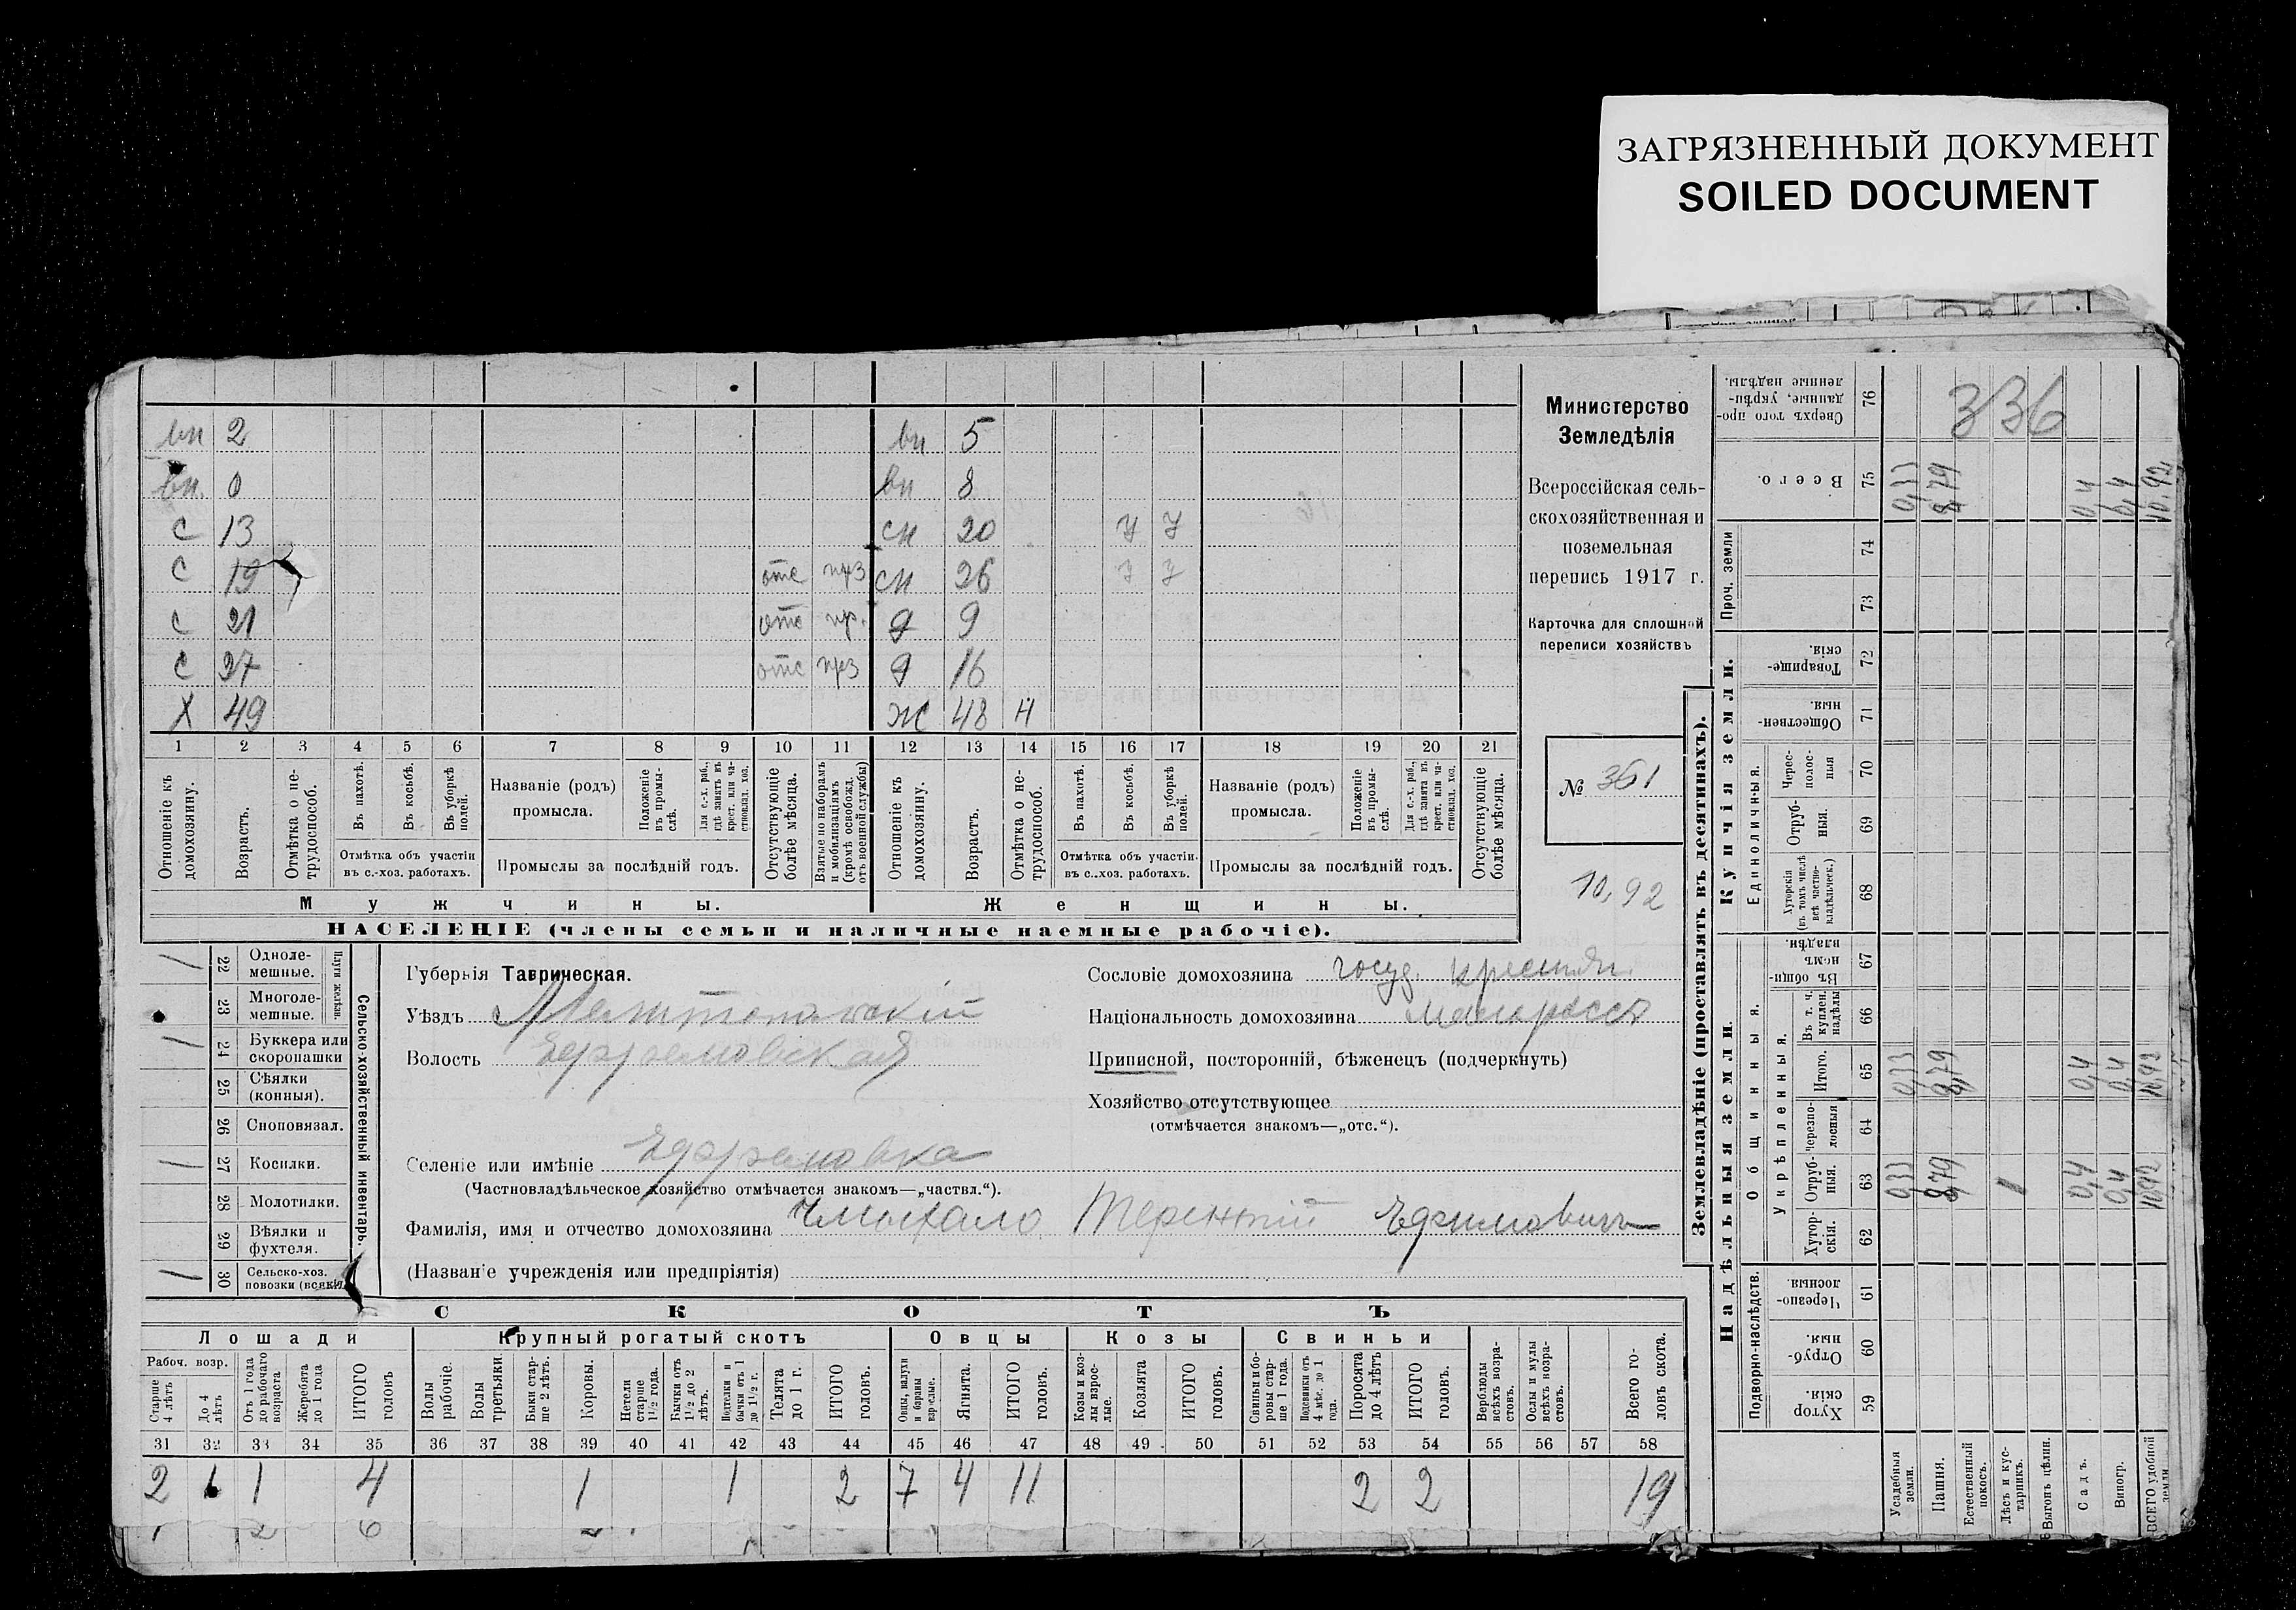 ЗАГРЯЗНЕННЫЙ ДОКУМЕНТ
SOILED DOCUMENT
вн 2 вн 5
вн. 0 вн 8
с 13 сн 20 у у
с 19 отс прз сн 26 у у
с 21 отс пр. д 9
с 27 отс прз д 16
Х 49 ж 48 Н
1 2 3 4 5 6 7 8 9 10 11 12 13 14 15 16 17 18 19 20 21
Отношеніе къ домохозяину.
Возрастъ.
Отмѣтка о не-трудоспособ.
Въ пахотѣ.
Въ косьбѣ.
Въ уборкѣ полей.
Отмѣтка объ участіи
въ с.-хоз. работахъ.
Названіе (родъ)
промысла.
Положеніе въ промы-слѣ.
Для с.-х. раб., гдѣ занятъ въ крест. или ча-стновлад. хоз.
Промыслы за послѣдній годъ.
Отсутствующіе болѣе мѣсяца.
Взятые по наборамъ и мобилизаціямъ (кромѣ освобожд. отъ военной службы)
Отношеніе къ домохозяину.
Возрастъ.
Отмѣтка о не-трудоспособ.
Въ пахотѣ.
Въ косьбѣ.
Въ уборкѣ полей.
Отмѣтка объ участіи
въ с.-хоз. работахъ.
Названіе (родъ)
промысла.
Положеніе въ промы-слѣ.
Для с.-х. раб., гдѣ занята въ крест. или ча-стновлад. хоз.
Промыслы за послѣдній годъ.
Отсутствующіе болѣе мѣсяца.
Мужчины. Женщины.
НАСЕЛЕНІЕ (члены семьи и наличные наемные рабочіе).
Министерство
Земледѣлія
Всероссійская сель-
скохозяйственная и
поземельная
перепись 1917 г.
Карточка для сплошной
переписи хозяйствъ
№ 361
10,92
Сельско-хозяйственный инвентарь.
Плуги желѣзн.
/ 22 Одноле-мешные.
23 Многоле-мешные.
/ 24 Буккера или скоропашки
25 Сѣялки (конныя).
26 Сноповязал.
/ 27 Косилки.
28 Молотилки.
29 Вѣялки и фухтеля.
/ 30 Сельско-хоз. повозки (всякія)
Губернія Таврическая.
Уѣздъ Мелитопольскій
Волость Ефремовская
Селеніе или имѣніе Ефремовка
(Частновладѣльческое хозяйство отмѣчается знакомъ—„частвл.“).
Фамилія, имя и отчество домохозяина Чмыхало Терентій Ефимовичъ
(Названіе учрежденія или предпріятія)
Сословіе домохозяина госуд. крестьян.
Національность домохозяина малороссъ
Приписной, посторонній, бѣженецъ (подчеркнуть)
Хозяйство отсутствующее
(отмѣчается знакомъ—„отс.“).
СКОТЪ
Лошади Крупный рогатый скотъ Овцы Козы Свиньи
Рабоч. возр.
Старше 4 лѣтъ
До 4 лѣтъ
Отъ 1 года до рабочаго возраста
Жеребята до 1 года
ИТОГО головъ
Волы рабочіе.
Волы третьяки.
Быки стар-ше 2 лѣтъ.
Коровы.
Нетели старше 1 1/2 года.
Бычки отъ 1 1/2 до 2 лѣтъ.
Подтелки и бычки отъ 1 до 1 1/2 г.
Телята до 1 г.
ИТОГО головъ.
Овцы, валухи и бараны взрослые.
Ягнята.
ИТОГО головъ.
Козы и коз-лы взрос-лые.
Козлята
ИТОГО головъ.
Свиньи и бо-ровы стар-ше 1 года.
Подсвинки отъ 4 мѣс. до 1 года.
Поросята до 4 лѣтъ
ИТОГО головъ.
Верблюды всѣхъ возра-стовъ.
Ослы и мулы всѣхъ возра-стовъ.
Всего го-ловъ скота.
31 32 33 34 35 36 37 38 39 40 41 42 43 44 45 46 47 48 49 50 51 52 53 54 55 56 57 58
2 1 1 4 1 1 2 7 4 11 2 2 19
1 2 6 2
Землевладѣніе (проставлять въ десятинахъ).
Надѣльныя земли. Купчія земли. Проч. земли
Подворно-наслѣдств.
Общинныя.
Укрѣпленныя.
Единоличныя.
59 Хутор-скія.
60 Отруб-ныя.
61 Черезпо-лосныя
62 Хутор-скія.
63 Отруб-ныя.
64 Черезпо-лосныя
65 Итого.
66 Въ т. ч. куплен. надѣлы
67 Въ общин-номъ владѣн.
68 Хуторскія (въ томъ числѣ всѣ частно-владѣльческ.)
69 Отруб-ныя.
70 Черес-полос-ныя
71 Обществен-ныя.
72 Товарище-скія.
73
74
75 Всего.
76 Сверхъ того про-данные, укрѣп-ленные надѣлы.
336
Усадебныя земли. 0,33 0,33 0,33
Пашня. 8,79 8,79 8,79
Естественный покосъ.
Лѣсъ и кус-тарникъ.
Выгонъ цѣлин.
Садъ. 0,4 0,4 0,4
Виногр. 0,4 0,4 0,4
ВСЕГО удобной земли 10,92 10,92 10,92